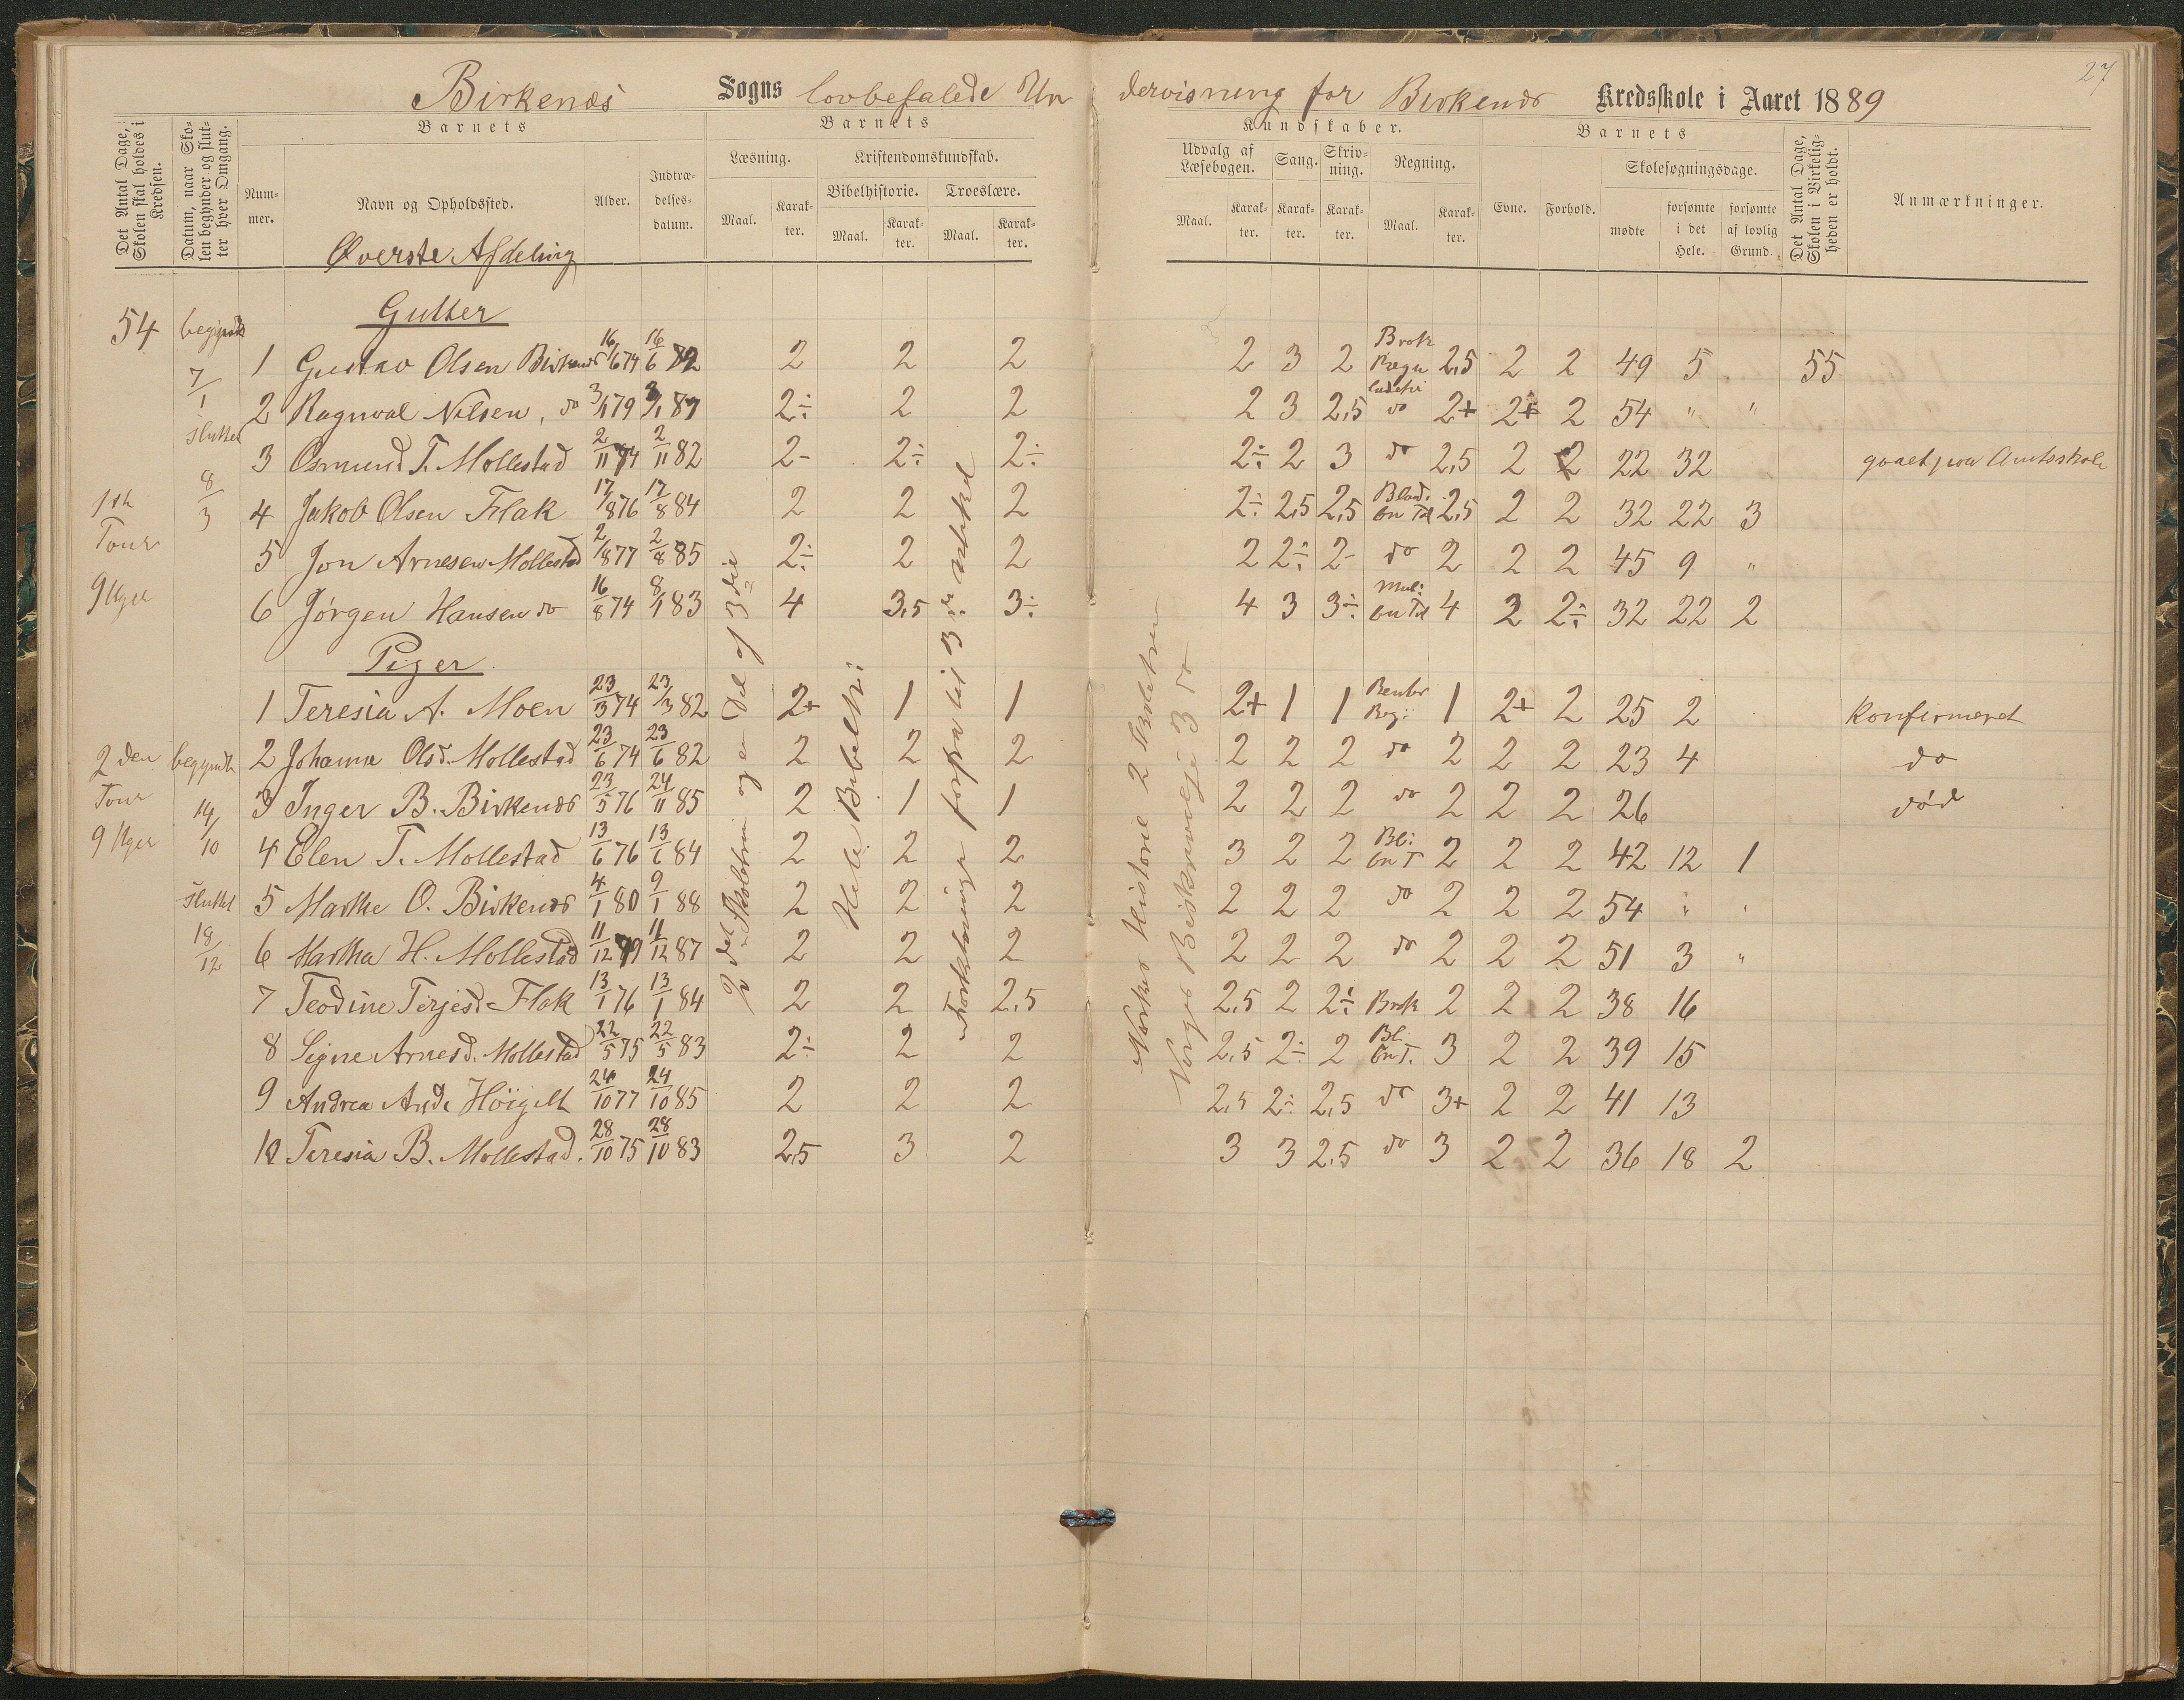 27
Birkenæs Sogns lovbefalede Undervisning for Birkenæs Kredsskole i Aaret 1889
Det Antal Dage, Skolen skal holdes i Kredsen.
Datum, naar Skolen begynder og slutter hver Omgang.
Barnets
Nummer.
Navn og Opholdssted.
Alder.
Indtrædelsesdatum.
Barnets
Læsning.
Maal.
Karakter.
Kristendomskundskab.
Bibelhistorie.
Maal.
Karakter.
Troeslære.
Maal.
Karakter.
Kundskaber.
Udvalg af Læsebogen.
Maal.
Karakter.
Sang.
Karakter.
Skrivning.
Karakter.
Regning.
Maal.
Karakter.
Barnets
Evne.
Forhold.
Skolesøgningsdage.
mødte
forsømte i det Hele.
forsømte af lovlig Grund.
Det Antal Dage, Skolen i Virkeligheden er holdt.
Anmærkninger.
Øverste Afdeling
Gutter
54 begyndt 7/1 sluttet 8/3
1ste Tour 9 Uger
1 Gustav Olsen Birkenæs 16/6 74 16/6 82 2 2 2 2 3 2 Brok 2,5 2 2 49 5 55
2 Ragnval Nilsen, do 3/1 79 87 2÷ 2 2 2 3 2,5 do 2+ 2+ 2 54 " "
3 Osmund T. Mollestad 2/11 74 2/11 82 2- 2÷ 2÷ 2÷ 2 3 do 2,5 2 2 22 32 gaaet paa Amtsskole
4 Jakob Olsen Flak 17/8 76 17/8 84 2 2 2 2÷ 2,5 2,5 Bland. Tal 2,5 2 2 32 22 3
5 Jon Arnesen Mollestad 2/8 77 2/8 85 2÷ 2 2 2 2÷ 2- do 2 2 2 45 9 "
6 Jørgen Hansen do 16/8 74 8/1 83 4 3,5 3÷ 4 3 3÷ Mul: Tal 4 3 2÷ 32 22 2
Piger
1 Teresia A. Moen 23/3 74 23/3 82 2+ 1 1 2+ 1 1 1 2+ 2 25 2 Konfirmeret
2den Tour 9 Uger begyndt 14/10 sluttet 18/12
2 Johanne Olsd. Mollestad 23/6 74 23/6 82 2 2 2 2 2 2 do 2 2 2 23 4 do
3 Inger B. Birkenæs 23/5 76 24/11 85 2 1 1 2 2 2 do 2 2 2 26 død
4 Elen T. Mollestad 13/6 76 13/6 84 2 2 2 3 2 2 Bl: T 2 2 2 42 12 1
5 Marthe O. Birkenæs 4/1 80 9/1 88 2 2 2 2 2 2 do 2 2 2 54 " "
6 Martha H. Mollestad 11/12 79 11/12 87 2 2 2 2 2 2 do 2 2 2 51 3 "
7 Teodine Terjesd. Flak 13/1 76 13/1 84 2 2 2,5 2,5 2 2÷ Brok 2 2 2 38 16
8 Signe Arnesd. Mollestad 22/5 75 22/5 83 2÷ 2 2 2,5 2÷ 2 Bl. T. 3 2 2 39 15
9 Andrea 24/10 77 24/10 85 2 2 2 2,5 2÷ 2,5 do 3+ 2 2 41 13
10 Teresia B. Mollestad. 28/10 75 28/10 83 2,5 3 2 3 3 2,5 do 3 2 2 36 18 2
2det Skoletrin og en Del af 3die
Hele Bibelh:
Forklaringen forfra til 3die Artikel
Norskes Historie 2 Skoletrin
Norges Beskrivelse 3 do